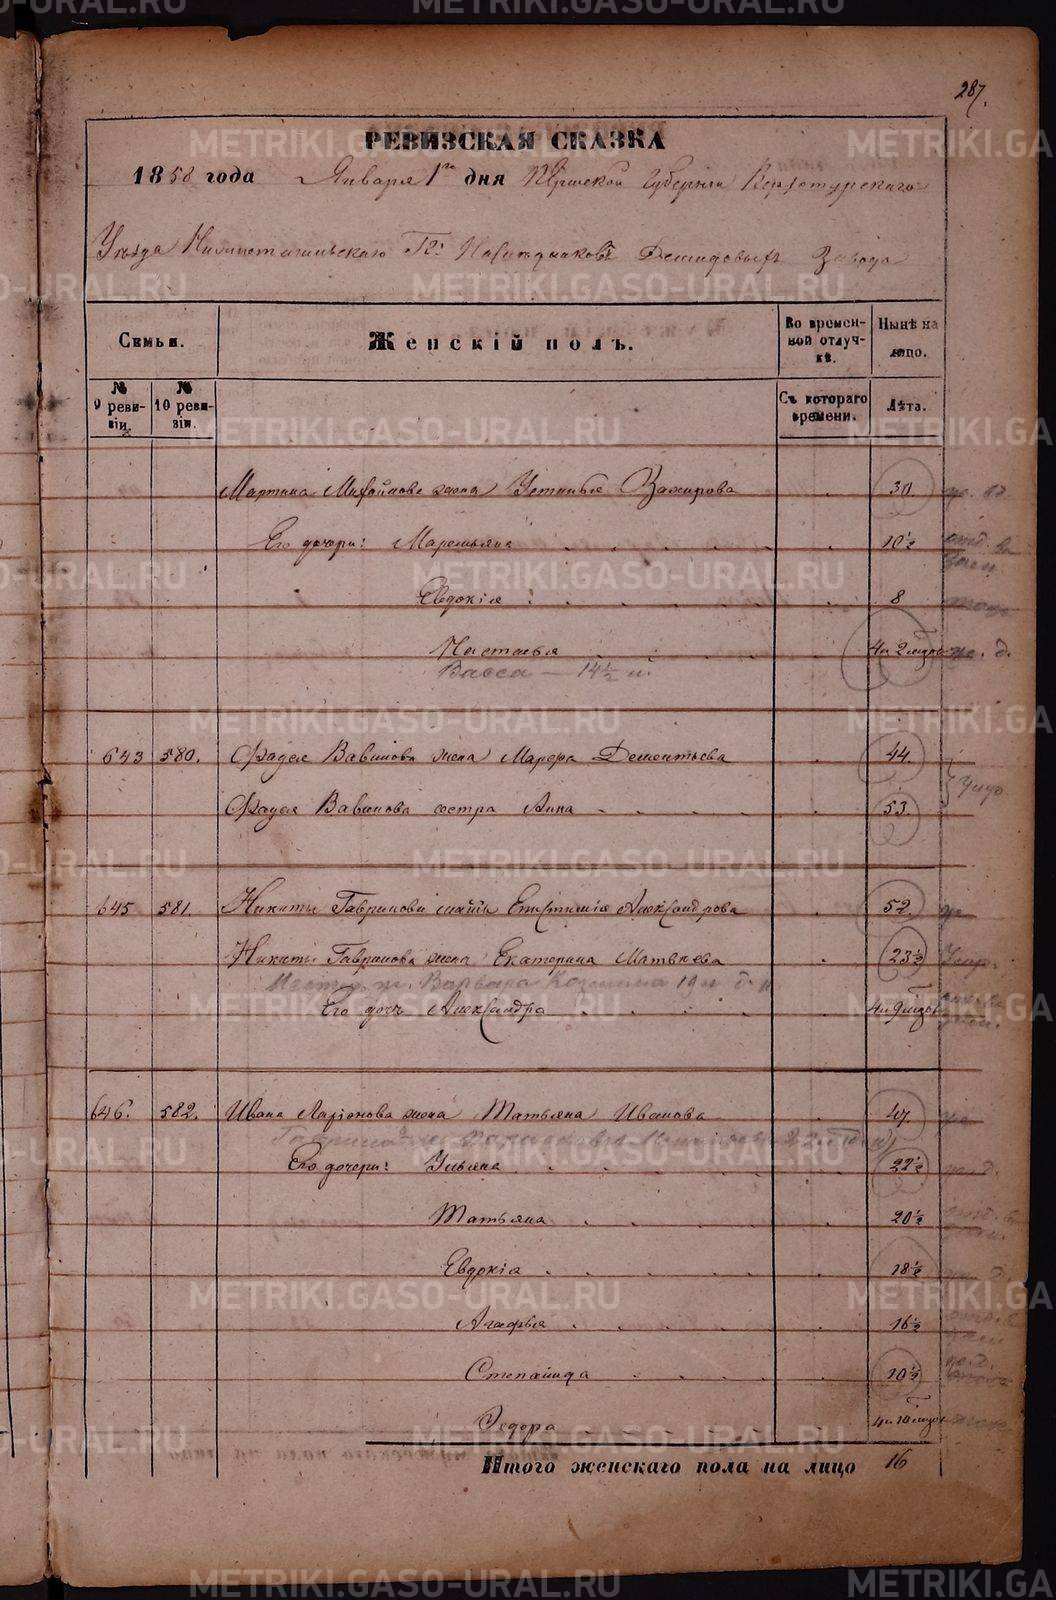 287.
РЕВИЗСКАЯ СКАЗКА
1858 года Января 1го дня Пермской Губернии Верхотурскаго
Уѣзда Нижнетагильскаго Гг. Наслѣдниковъ Демидовыхъ Завода
Семьи. Женскій полъ. Во временной отлучкѣ. Нынѣ на лицо.
№ 9 ревизіи. № 10 ревизіи. Съ котораго времени. Лѣта.
Мартина жена Устинья Захарова 30.
Его дочери: Маремьяна 10½
Евдокія 8
Настасья 4 и 2 мѣсяц
Васса — 14½
643 580. Фадея Вавилова жена Марфа Дементьева 44.
Фадея Вавилова сестра Анна 53.
645 581. Никиты Гаврилова мать Александрова 52.
Никиты Гаврилова жена Екатерина Матвѣева 23½
Варвара 19
Его дочь Александра 4 и 9 мѣсяц
646. 582. Ивана Ларіонова жена Татьяна Иванова 47.
Его дочери: Ульяна 22½
Татьяна 20½
Евдокія 18½
Агафья 16½
Степанида 10½
Федора 4 и 10 мѣсяц
Итого женскаго пола на лицо 16
METRIKI.GASO-URAL.RU